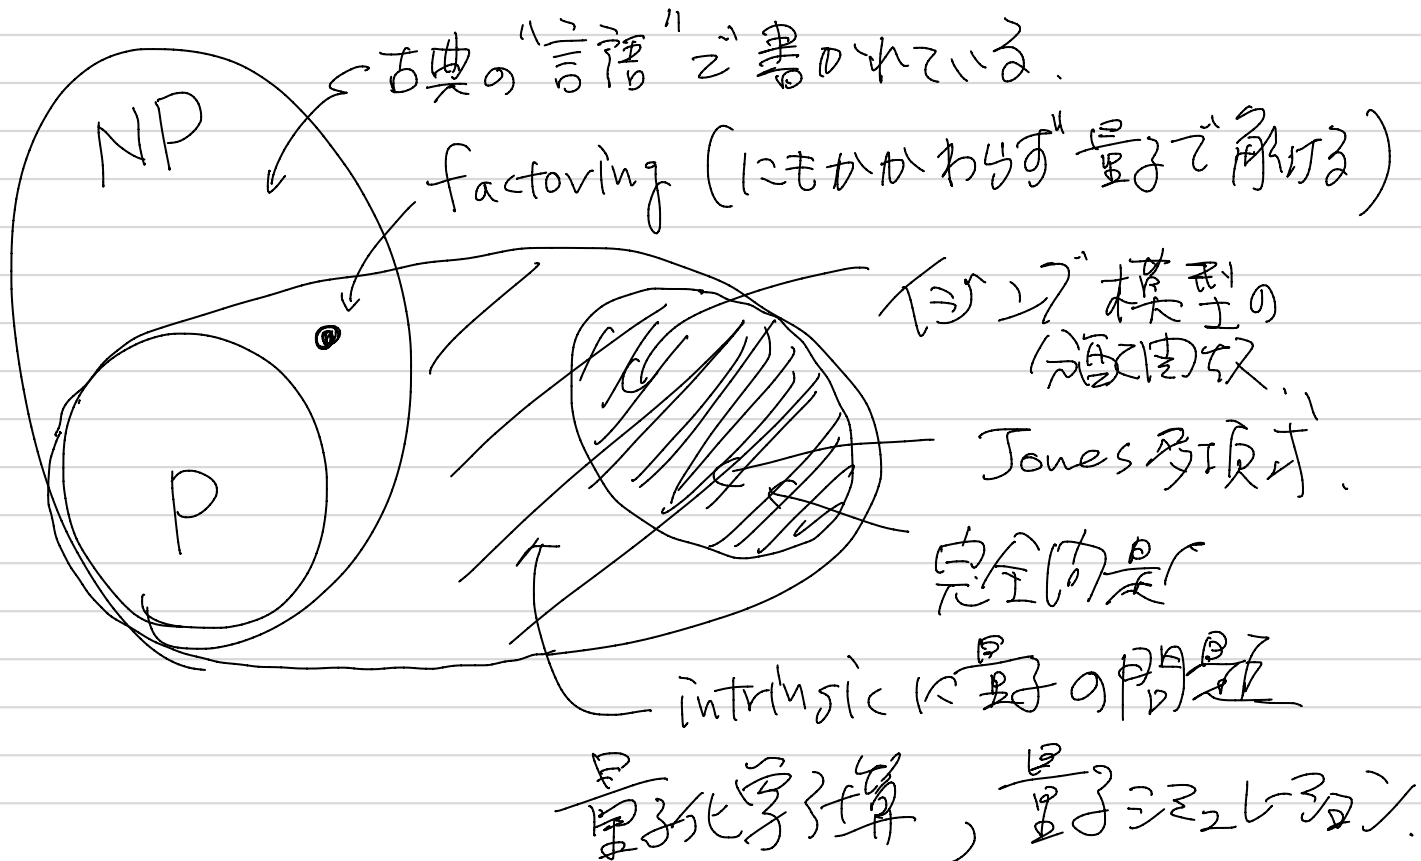 古典の“言語”で書かれている.
NP
factoring (にもかかわらず量子で解ける)
イジング模型の
分配関数.
Jones多項式.
P
完全問題
intrinsicに量子の問題
量子化学計算, 量子シミュレーション.